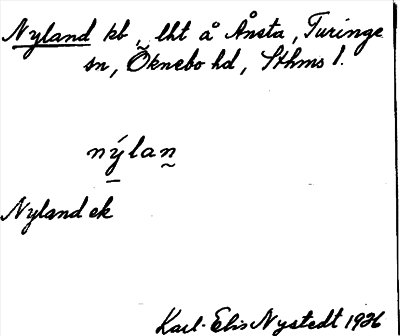 Nyland kb, lht å Ånsta, Turinge
sn, Öknebo hd, Sthms l.
nýlan
Nyland ek
Karl-Elis Nystedt 1926